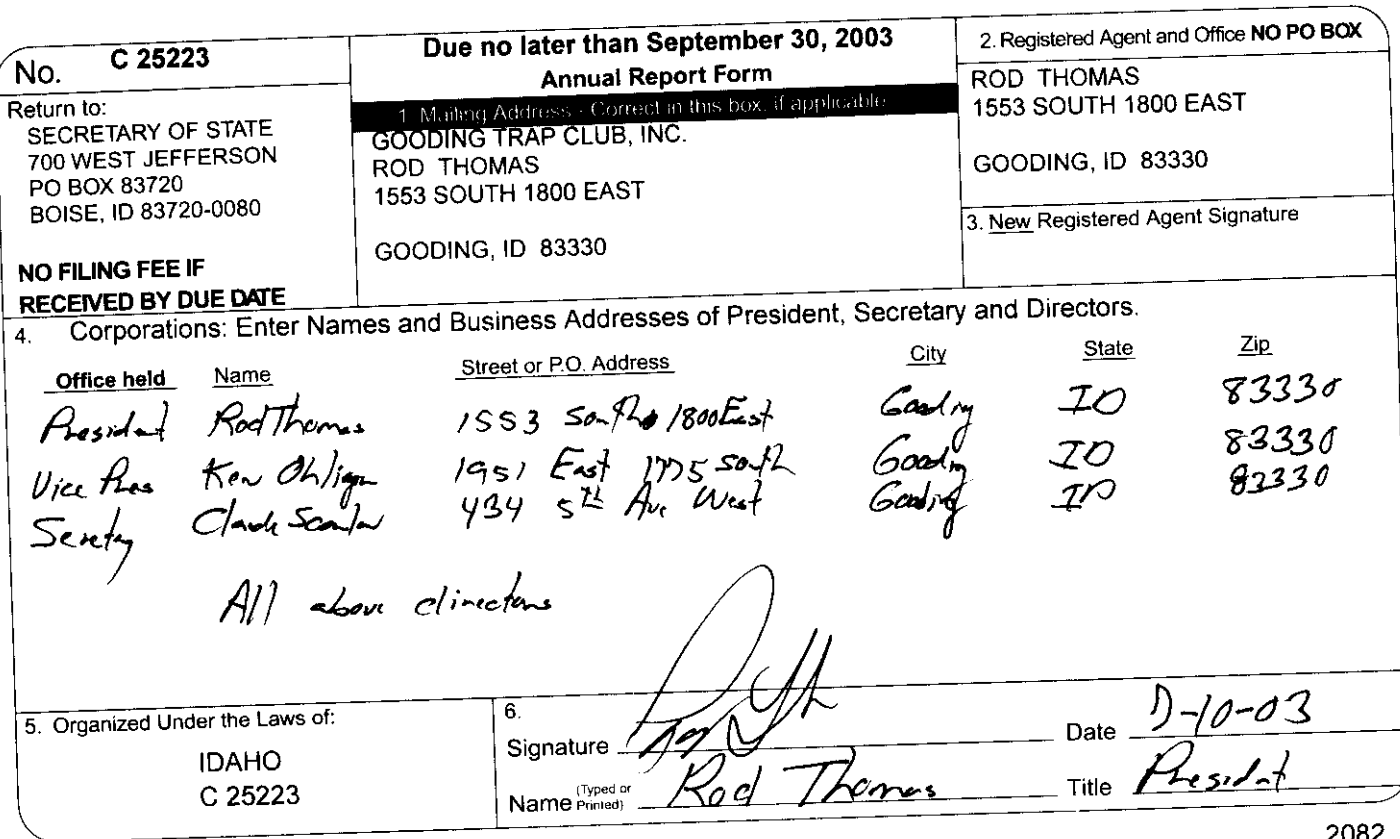 No. C 25223
Return to:
SECRETARY OF STATE
700 WEST JEFFERSON
PO BOX 83720
BOISE, ID 83720-0080
NO FILING FEE IF
RECEIVED BY DUE DATE
Due no later than September 30, 2003
Annual Report Form
1. Mailing Address - Correct in this box, if applicable
GOODING TRAP CLUB, INC.
ROD THOMAS
1553 SOUTH 1800 EAST
GOODING, ID 83330
2. Registered Agent and Office NO PO BOX
ROD THOMAS
1553 SOUTH 1800 EAST
GOODING, ID 83330
3. New Registered Agent Signature
4. Corporations: Enter Names and Business Addresses of President, Secretary and Directors.
Office held Name Street or P.O. Address City State Zip
President Rod Thomas 1553 South 1800 East Gooding ID 83330
Vice Pres Ken 1951 East 1775 South Gooding ID 83330
Secretary 434 5th Ave West Gooding ID 83330
All above directors
5. Organized Under the Laws of:
IDAHO
C 25223
6.
Signature Date -10-03
Name (Typed or Printed) Rod Thomas Title President
2082